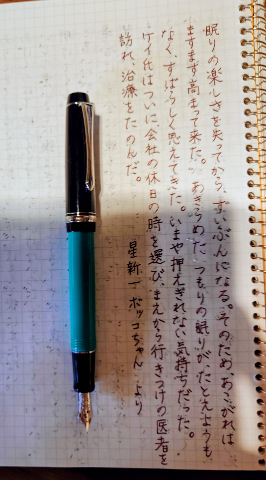 眠りの楽しさを失ってから、ずいぶんになる。そのため、あこがれは
ますます高まって来た。あきらめたつもりの眠りが、たとえようも
なく、すばらしく思えてきた。いまや押えきれない気持ちだった。
ケイ氏はついに会社の休日の時を選び、まえから行きつけの医者を
訪れ、治療をたのんだ。
星新一 ボッコちゃん より